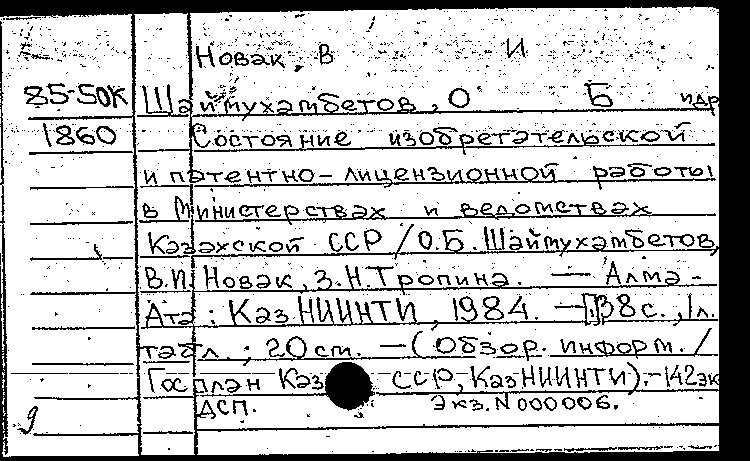 Новак, В И
85-50К Шаймухамбетов, О Б идр
1860 Состояние изобретательской
и патентно-лицензионной работы
в Министерствах и ведомствах
Казахской ССР / О.Б. Шаймухамбетов,
В.И. Новак, З.Н. Тропина. — Алма-
Ата : КазНИИНТИ, 1984. — 38 с., 1 л.
табл. ; 20 см. — (Обзор. информ. /
Госплан Каз ССР, КазНИИНТИ). - 142 эк
ДСП. Экз. N 000006.
9